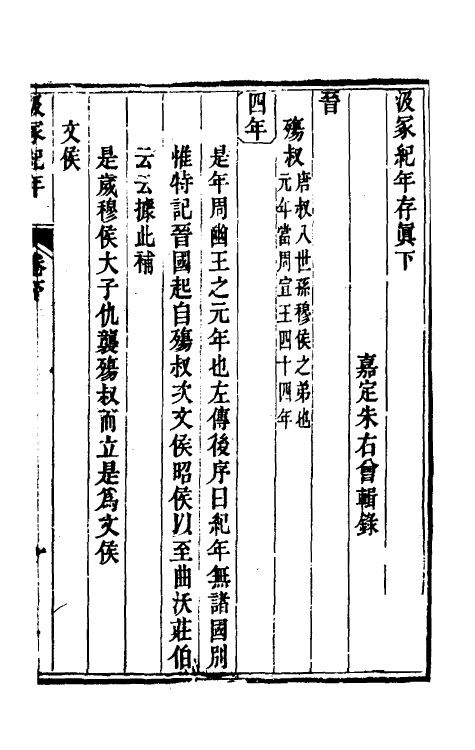 汲冢紀年存眞下
嘉定朱右曾輯錄
晉
殤叔 唐叔八世孫穆侯之弟也
元年當周宣王四十四年
四年
是年周幽王之元年也左傳後序曰紀年無諸國別
惟特記晉國起自殤叔次文侯昭侯以至曲沃莊伯
云云據此補
是歲穆侯大子仇襲殤叔而立是爲文侯
文侯
汲冢紀年